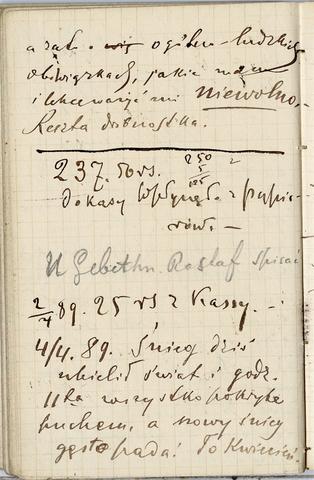 a zat. o ogólno-ludzkich
obowiązkach, jakie mam
i lekceważyć mi niewolno.
Reszta drobnostka.
237. rs.
250
5
125
do kasy wpłynęło z papie-
rów. –
U Gebethn. Rostaf spisać
2/4 89. 25 rs z Kassy. –
4/4. 89. Śnieg dziś
ubielił świat i godz.
11ta wszystko pokryte
puchem, a nowy śnieg
gęsto pada! To kwiecień